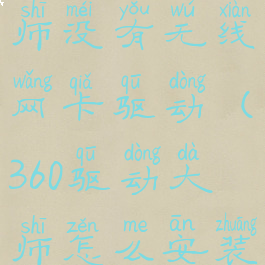 shī méi yǒu wú xiàn
师没有无线
wǎng qiǎ qū dòng
网卡驱动（
qū dòng dà
360驱动大
shī zěn me ān zhuāng
师怎么安装